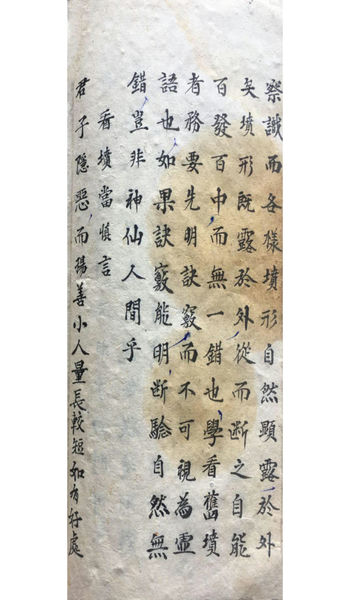 察識而各樣墳形自然顯露於外
矣墳形既露於外從而斷之自能
百發百中而無一錯也學看舊墳
者務要先明訣竅而不可視為虛
語也如果訣竅能明斷驗自然無
錯豈非神仙人間乎
看墳當慎言
君子隱惡而揚善小人量長較短如有好處